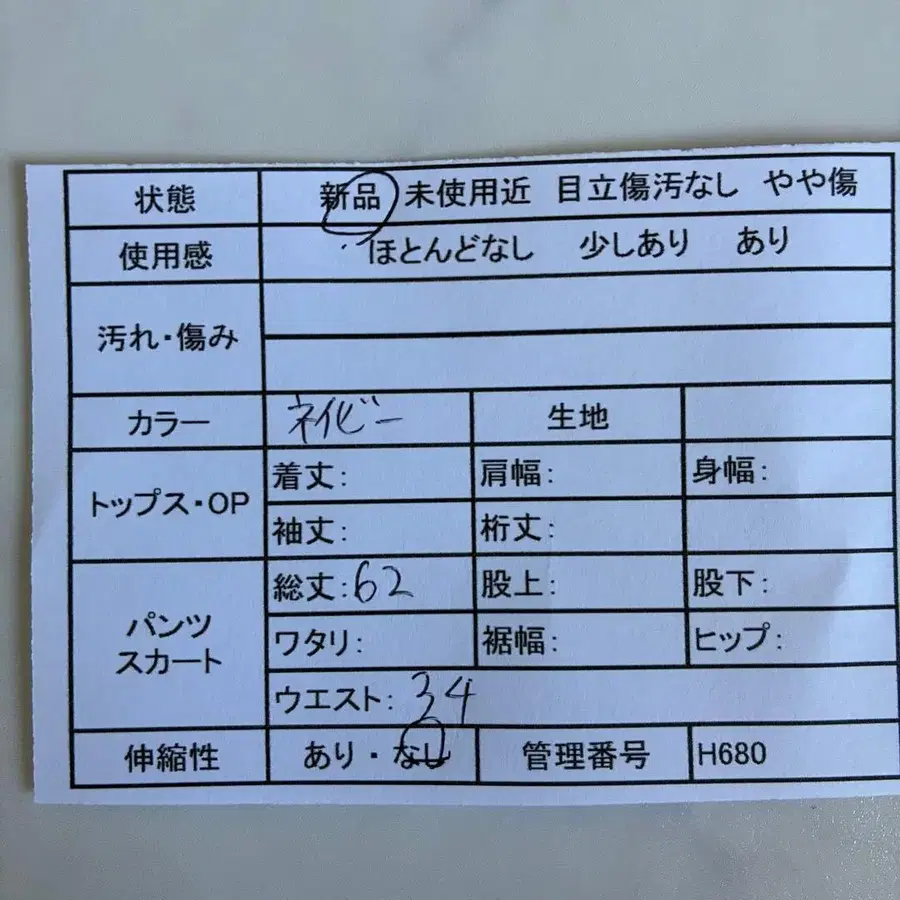 状態 新品 未使用近 目立傷汚なし やや傷
使用感 ほとんどなし 少しあり あり
汚れ・傷み
カラー ネイビー 生地
トップス・OP
着丈: 肩幅: 身幅:
袖丈: 裄丈:
パンツ
スカート
総丈:62 股上: 股下:
ワタリ: 裾幅: ヒップ:
ウエスト: 34
伸縮性 あり・なし 管理番号 H680